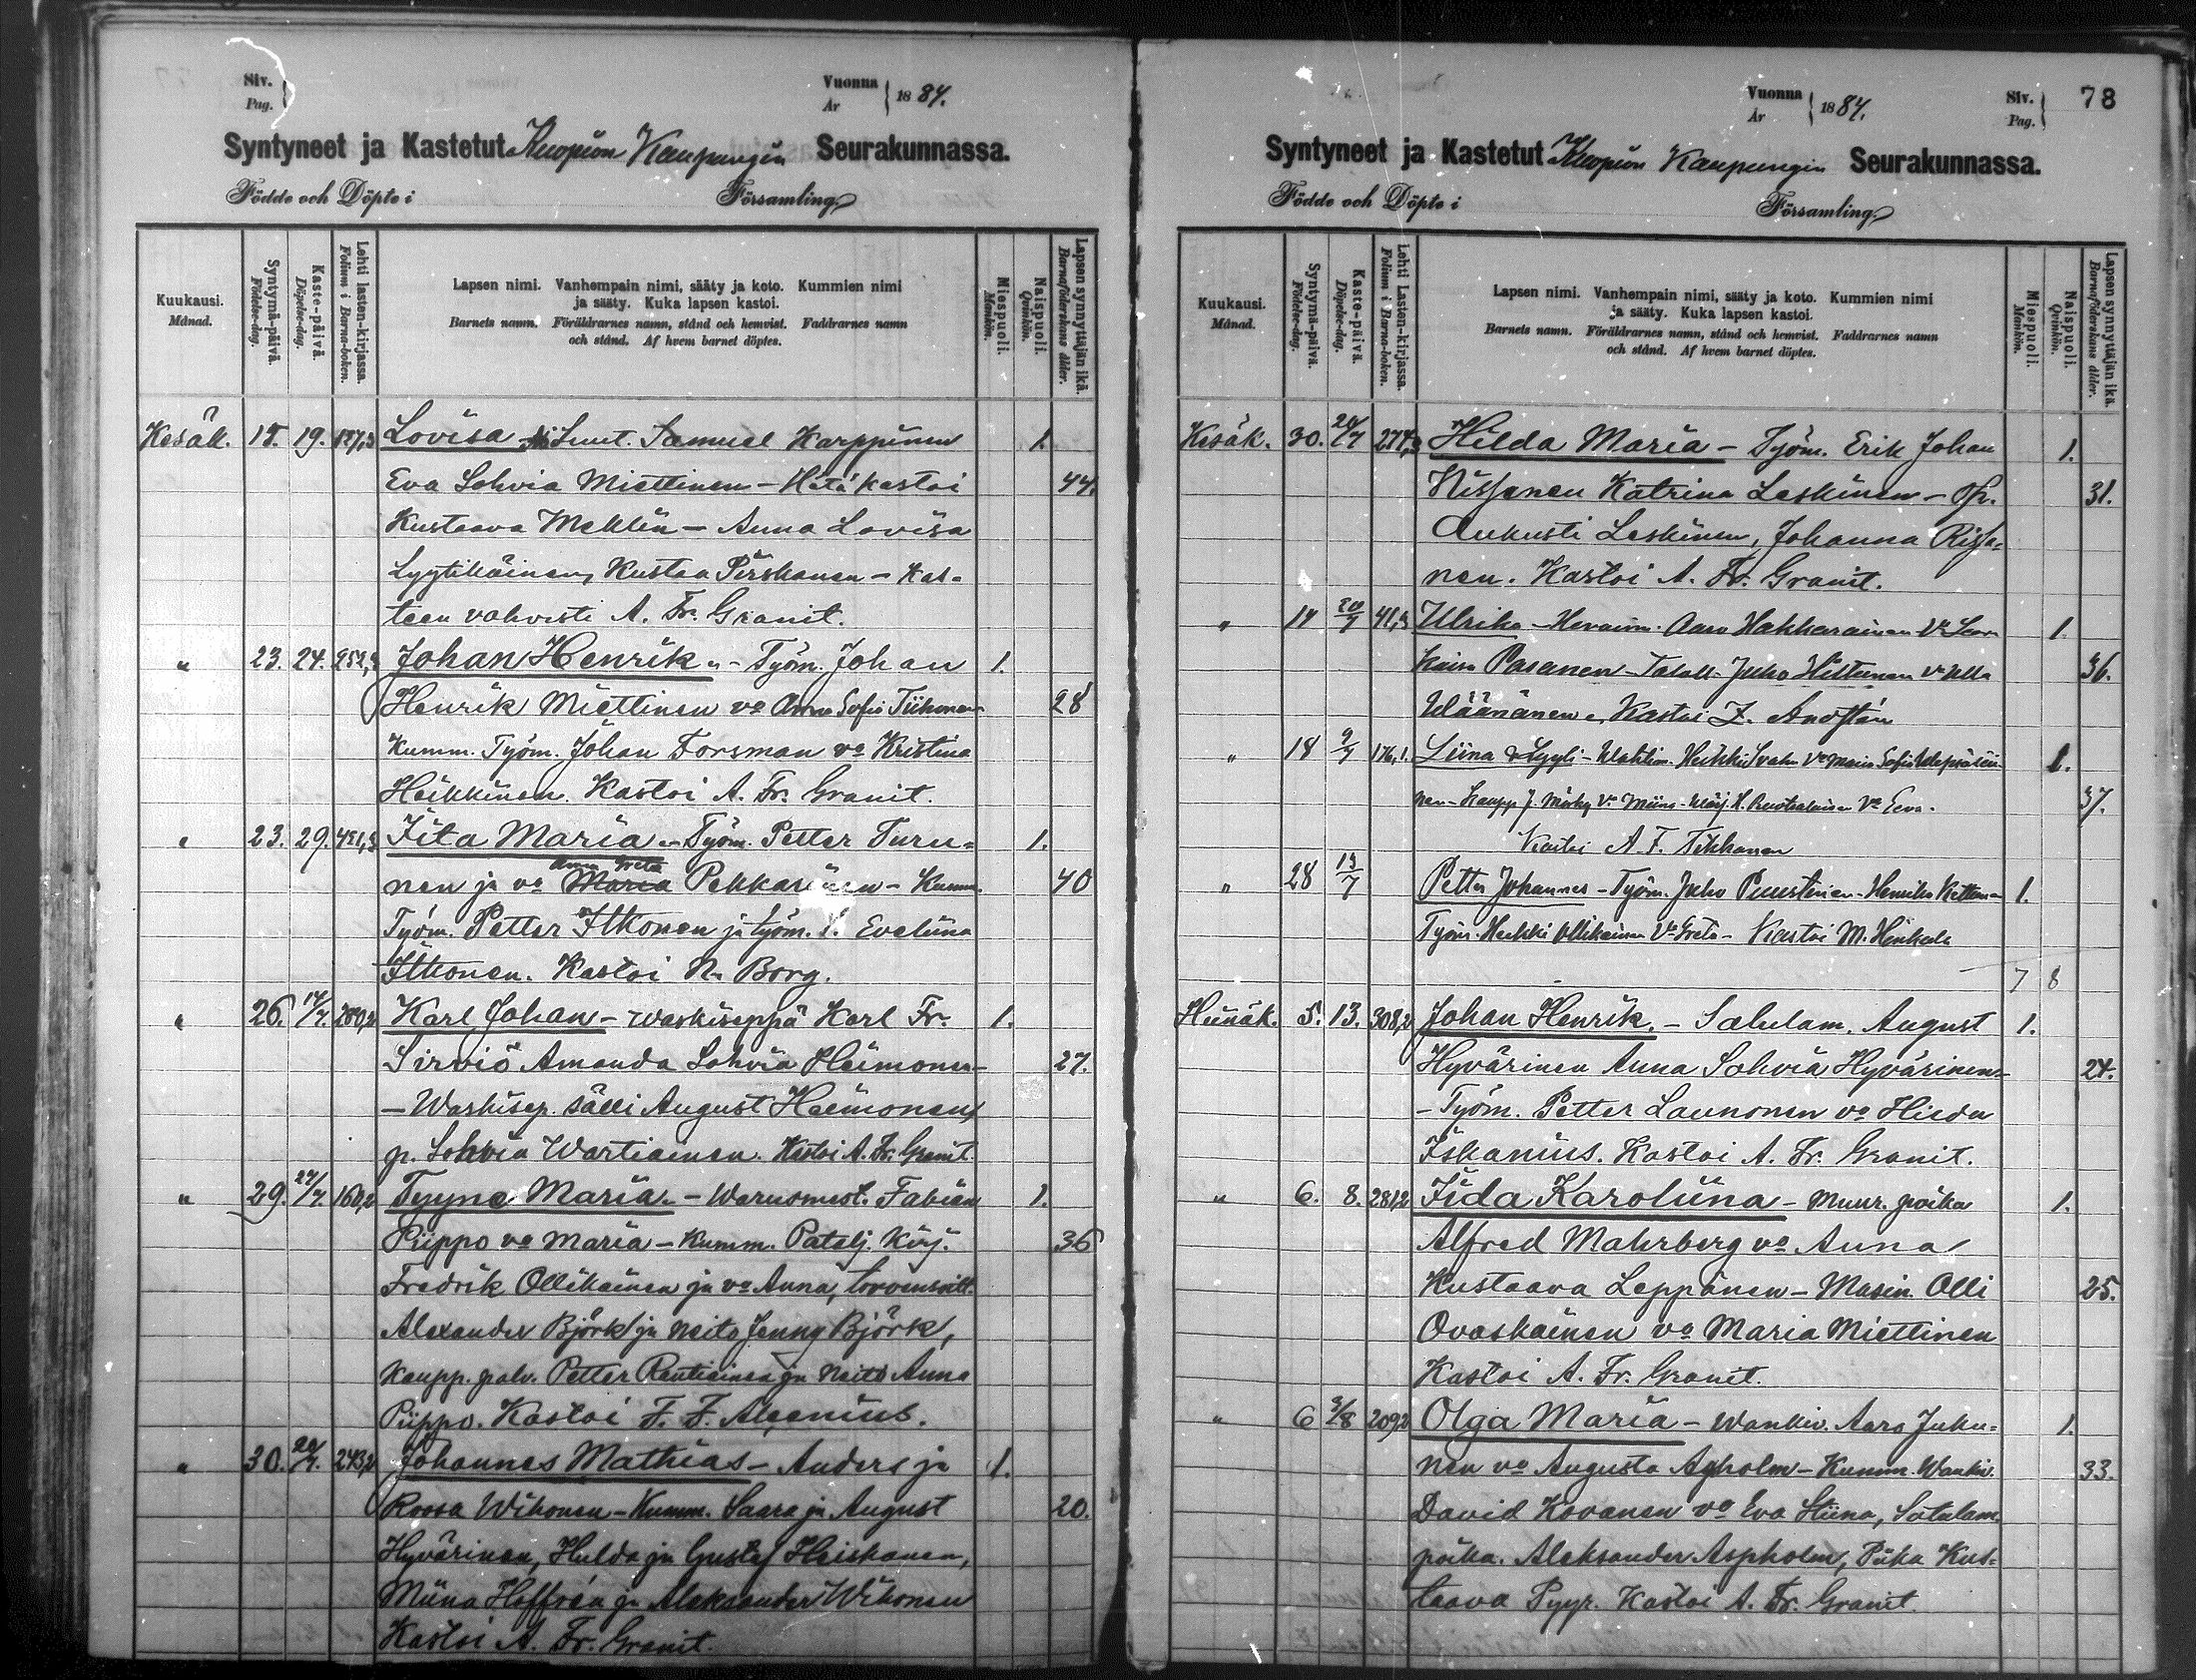 Siv.
Pag.
Vuonna
År
1884.
Syntyneet ja Kastetut Kuopion Kaupungin Seurakunnassa.
Födde och Döpte i Församling.
Kuukausi.
Månad.
Syntymä-päivä.
Födelse-dag.
Kaste-päivä.
Döpelse-dag.
Lehti lasten-kirjassa.
Folium i Barna-boken.
Lapsen nimi. Vanhempain nimi, sääty ja koto. Kummien nimi
ja sääty. Kuka lapsen kastoi.
Barnets namn. Föräldrarnes namn, stånd och hemvist. Faddrarnes namn
och stånd. Af hvem barnet döptes.
Miespuoli.
Mankön.
Naispuoli.
Qvinkön.
Lapsen synnyttäjän ikä.
Barnaföderskans ålder.
Kesäk. 15. 19. Lovisa Samuel Karppinen 1.
Eva Sohvia Miettinen - Hätä kastoi 44.
Kustaava Meklin - Anna Lovisa
Lyytikäinen, Kustaa Pirskanen - Kas-
teen vahvisti A. Fr. Granit.
" 23. 24. Johan Henrik - Työm. Johan 1.
Henrik Miettinen vo Anna Sofia Tiihonen 28
Kumm. Työm. Johan Forsman vo Kristina
Heikkinen. Kastoi A. Fr. Granit.
" 23. 29. Iita Maria - Työm. Petter Turu- 1.
Anna Greta
nen ja vo Maria Pekkarinen - Kumm. 40
Työm. Petter Itkonen ja työm. Eveliina
Itkonen. Kastoi N. Borg.
" 26. 14/7. Karl Johan - Waskiseppä Karl Fr. 1.
Sirviö Amanda Sohvia Heimonen 27.
- Waskisep. sälli August Heimonen,
p. Sohvia Wartiainen. Kastoi A. Fr. Granit.
" 29. 27/7. 160,2 Tyyne Maria - Warusmest. Fabian 1.
Piippo vo Maria - Kumm. Patalj. Kirj. 36
Fredrik Ollikainen ja vo Anna,
Alexander Björk ja neito Jenny Björk,
Kaupp. palv. Petter Rautiainen ja Neito Anna
Piippo. Kastoi F. F. Alcenius.
" 30. 20/7. 243,2 Johannes Mathias - Anders ja 1.
Roosa Wihonen - Kumm. Saara ja August 20.
Hyvärinen, Hulda ja Gustaf Heiskanen,
Miina Hoffrén ja Aleksander Wihonen
Kastoi A. Fr. Granit.
Vuonna
År
1884.
Siv.
Pag.
78
Syntyneet ja Kastetut Kuopion Kaupungin Seurakunnassa.
Födde och Döpte i Församling.
Kuukausi.
Månad.
Syntymä-päivä.
Födelse-dag.
Kaste-päivä.
Döpelse-dag.
Lehti Lasten-kirjassa.
Folium i Barna-boken.
Lapsen nimi. Vanhempain nimi, sääty ja koto. Kummien nimi
ja sääty. Kuka lapsen kastoi.
Barnets namn. Föräldrarnes namn, stånd och hemvist. Faddrarnes namn
och stånd. Af hvem barnet döptes.
Miespuoli.
Mankön.
Naispuoli.
Qvinkön.
Lapsen synnyttäjän ikä.
Barnaföderskans ålder.
Kesäk. 30. 20/7 Hilda Maria - Työm. Erik Johan 1.
Nissanen Katrina Leskinen - 31.
Aukusti Leskinen, Johanna Rissa-
nen. Kastoi A. Fr. Granit.
" 14 20/7 41,3 Ulrika - Aaro Hakkarainen 1.
Kaisa Pasanen - Juho Hiltunen vo Ulla 36.
Wäänänen. Kastoi
" 18 9/7 176,1. Liina Lyyli - Heikki 1.
37.
Kastoi A. F. Tikkanen
" 28 13/7 Petter Johannes - Työm. Juho Puustinen - 1.
Työm. Heikki Ollikainen vo Greta - Kastoi M.
7 8
Heinäk. 5. 13. 308,2 Johan Henrik. - Satulam. August 1.
Hyvärinen Anna Sohvia Hyvärinen - 24.
- Työm. Petter Launonen vo
Iskanius. Kastoi A. Fr. Granit.
" 6. 8. 281,2 Iida Karoliina - Muur. poika 1.
Alfred Mahrberg vo Anna
Kustaava Leppänen - Masin. Olli 25.
Ovaskainen vo Maria Miettinen
Kastoi A. Fr. Granit.
" 6 3/8 209,2 Olga Maria - Wankiv. Aaro Juhu- 1.
nen vo Augusta Aspholm - Kumm. Wankiv. 33.
David Kovanen vo Eva Stiina, Satulam.
poika. Aleksander Aspholm, Piika Kus-
taava Pyyr. Kastoi A. Fr. Granit.